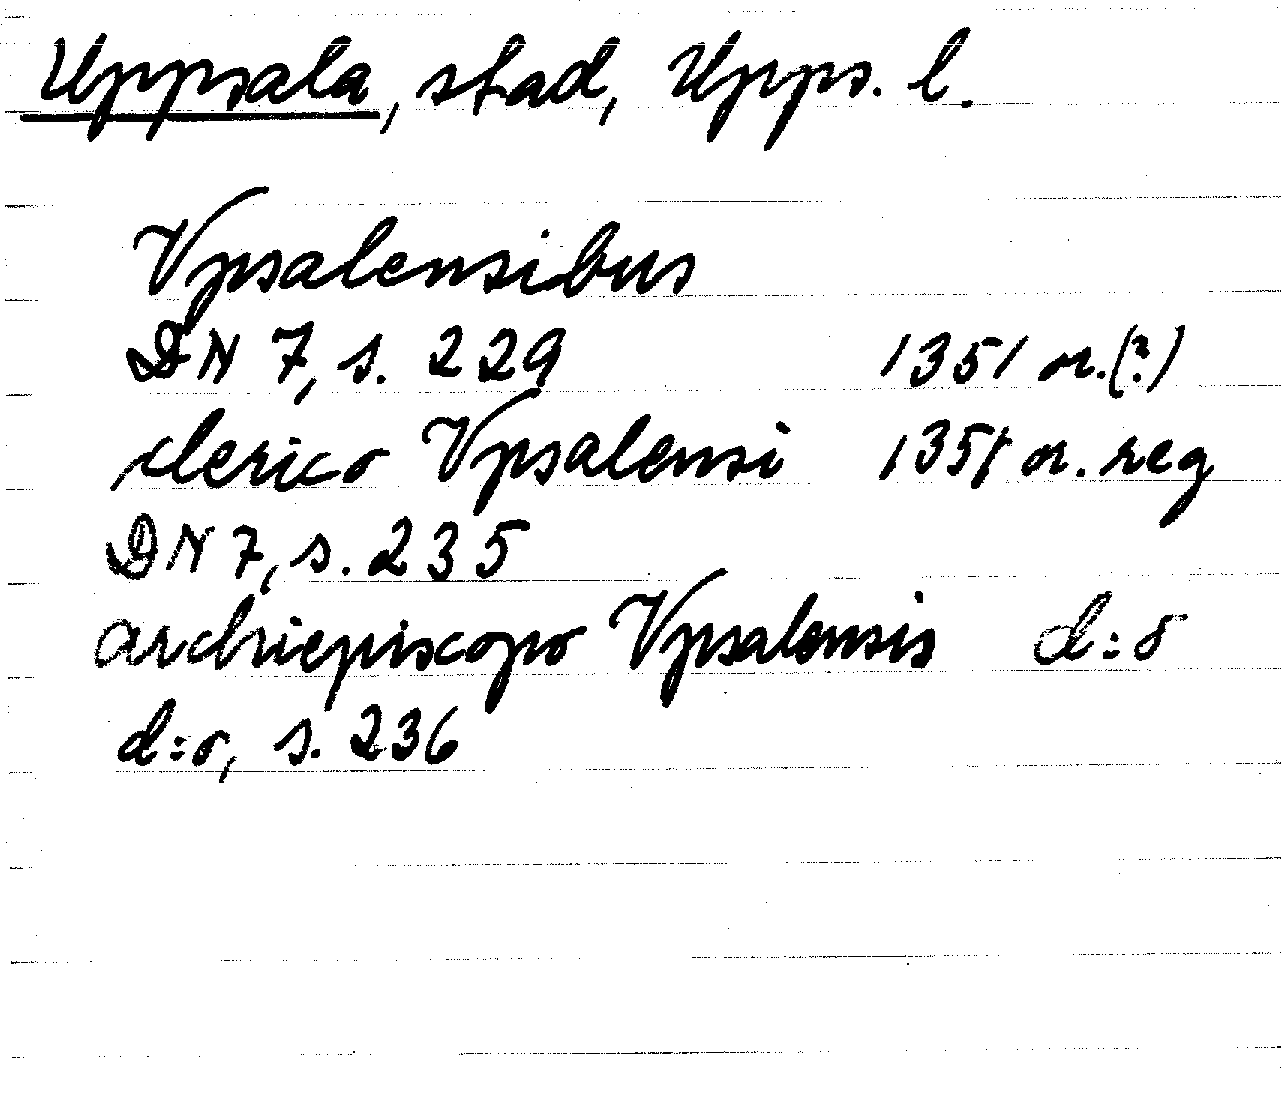 Uppsala, stad, Upps. l.
Vpsalensibus
DN 7, s. 229 1351 or.(?)
clerico Vpsalensi 1351 or. reg
DN 7, s. 235
archiepiscopo Vpsalensis d:o
d:o, s. 236